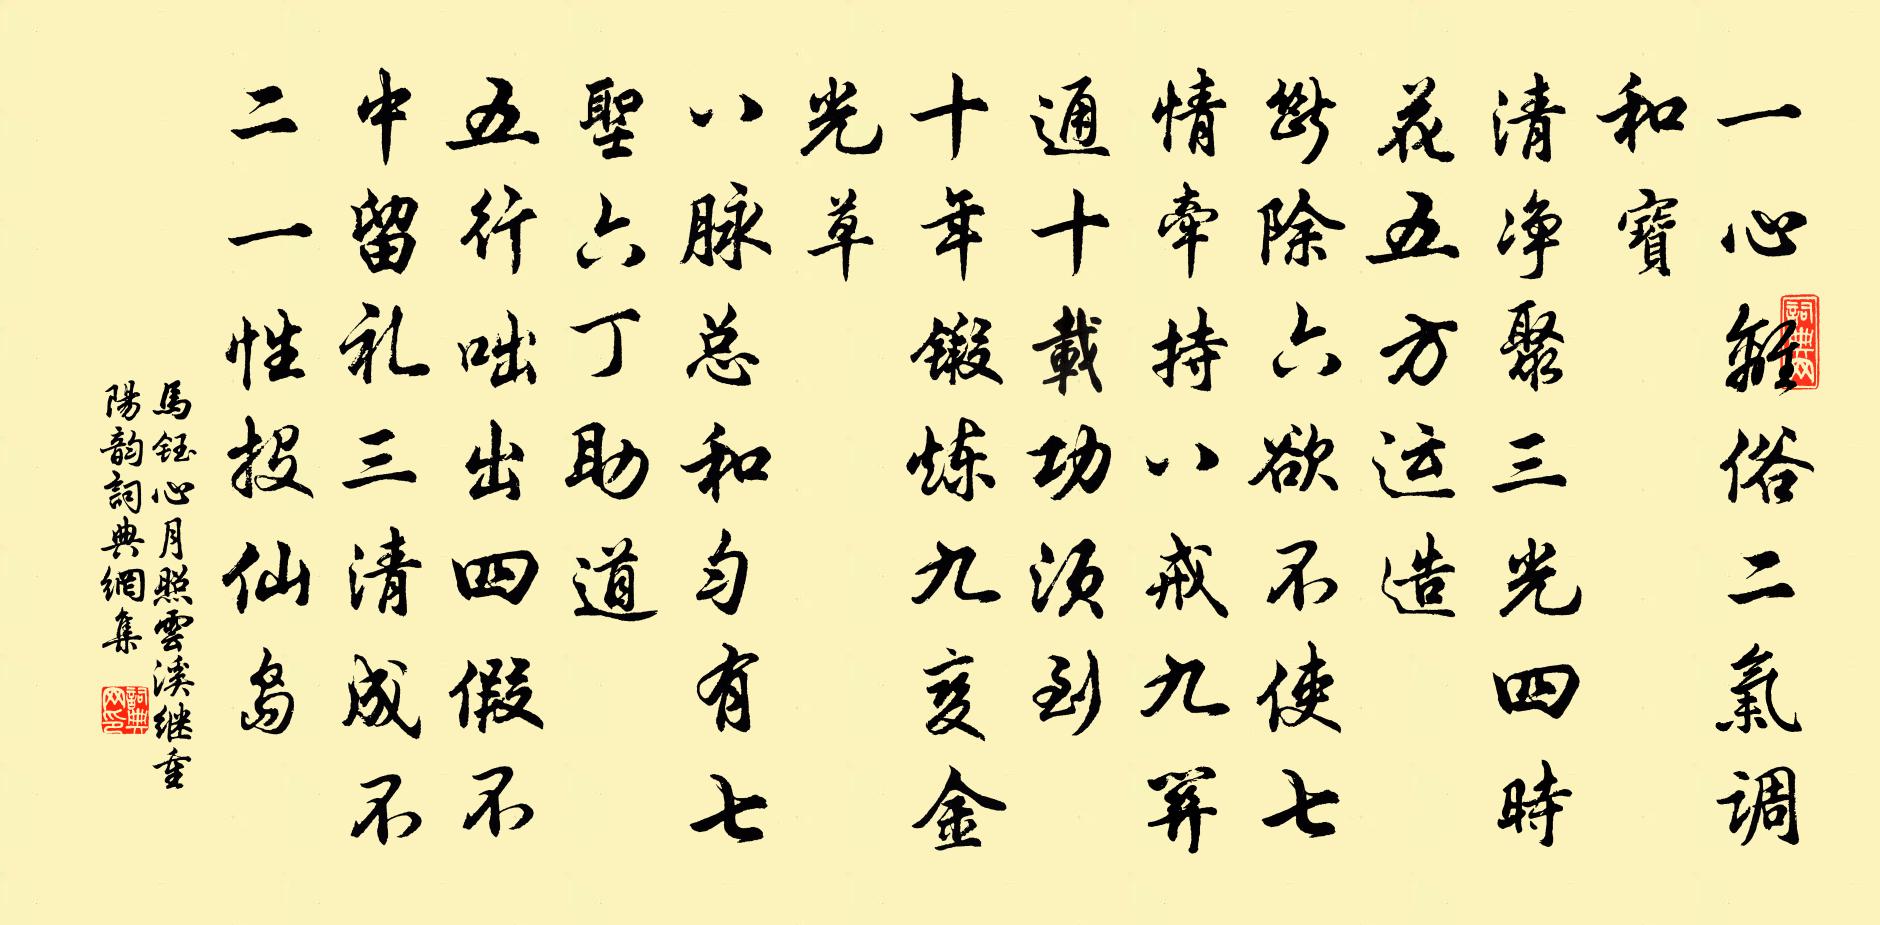 一心離俗二氣调
和寶
清净聚三光四時
花五方运造
斷除六欲不使七
情牵持八戒九
通十載功须到
十年鍛炼九变金
光草
八脉总和匀有七
聖六丁助道
五行咄出四假不
中留礼三清成不
二一性投仙岛
馬钰心月照雲溪继重
陽韵詞典網集
詞典网
詞典网印